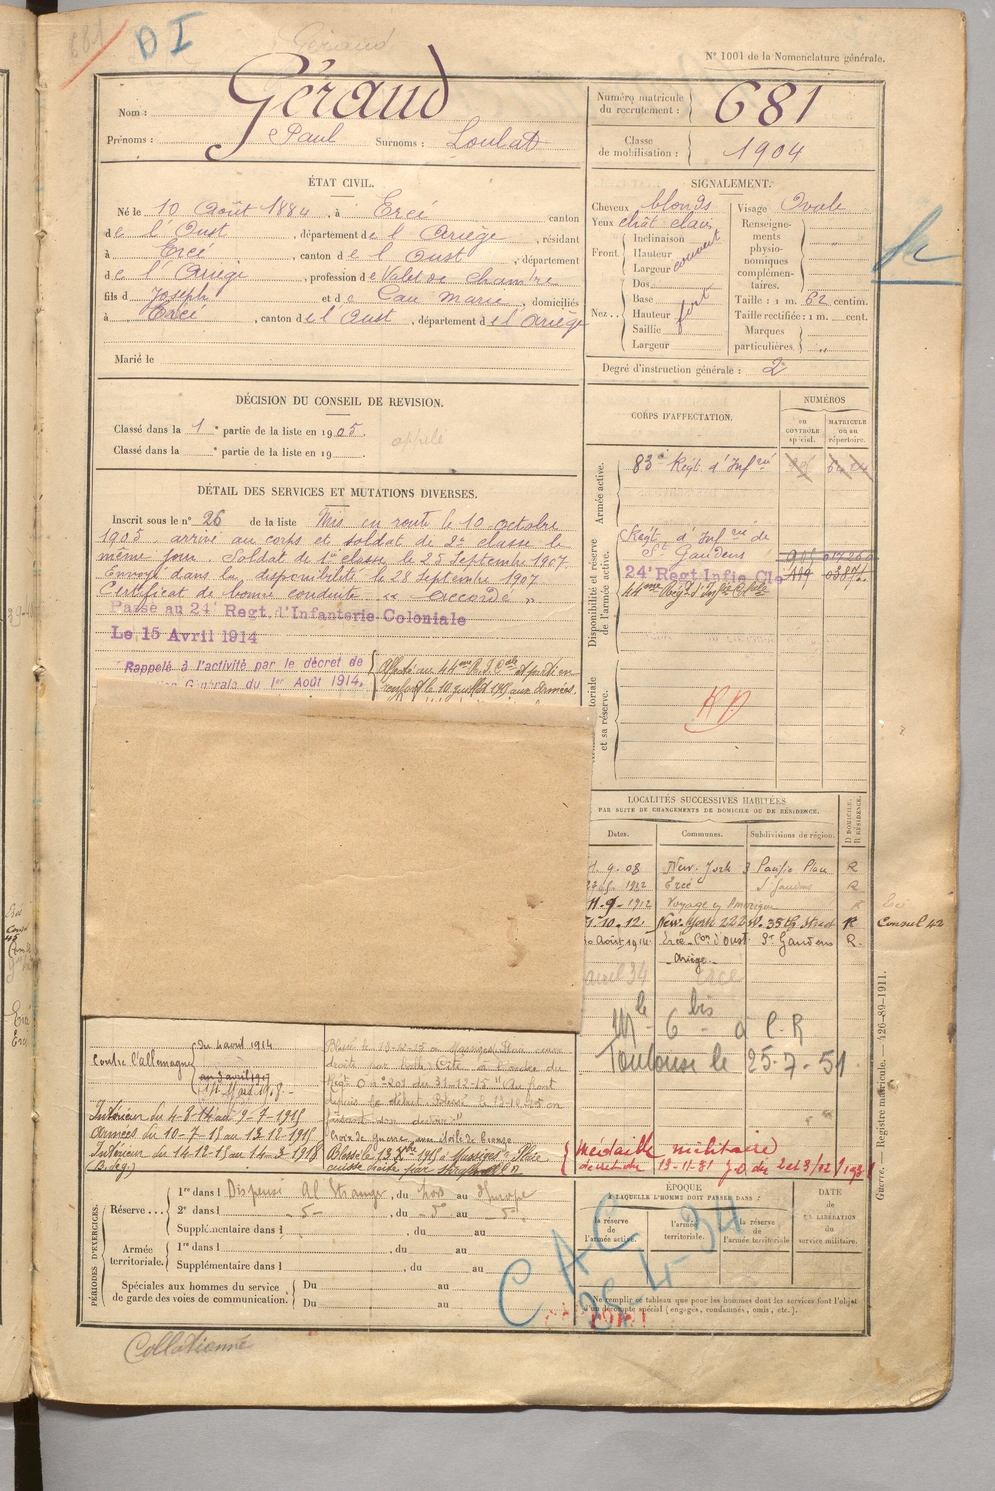 681
D I
Géraud
N° 1001 de la Nomenclature générale.
Nom : Géraud
Prénoms : Paul Surnoms : Loubat
Numéro matricule du recrutement : 681
Classe de mobilisation : 1904
ÉTAT CIVIL.
Né le 10 Août 1884, à Ercé canton
de l'Oust, département de l'Ariège, résidant
à Ercé, canton de l'Oust, département
de l'Ariège, profession de Valet de chambre
fils d Joseph et de Eau Marie, domiciliés
à Ercé, canton de l'Oust, département de l'Ariège
Marié le
SIGNALEMENT.
Cheveux blonds
Yeux chât clairs
Front. Inclinaison Hauteur Largeur couvert
Nez.. Dos Base Hauteur Saillie Largeur fort
Visage Ovale
Renseignements physionomiques complémentaires. "
Taille : 1 m. 62 centim.
Taille rectifiée : 1 m. cent.
Marques particulières. "
Degré d'instruction générale : 2
DÉCISION DU CONSEIL DE REVISION.
Classé dans la 1e partie de la liste en 1905.
appelé
Classé dans la e partie de la liste en 19
CORPS D'AFFECTATION.
NUMÉROS
au CONTRÔLE spécial.
MATRICULE ou au répertoire.
Armée active.
83e Régt d'Infrie
Disponibilité et réserve de l'armée active.
Régt d'Infrie de
St Gaudens
24e Regt Infie Cle
44eme Régt d'Infie Cple
et sa réserve.
DÉTAIL DES SERVICES ET MUTATIONS DIVERSES.
Inscrit sous le n° 26 de la liste Mis en route le 10 octobre
1905. arrivé au corps et soldat de 2e classe le
même jour. Soldat de 1e classe le 25 Septembre 1907
Envoyé dans la disponibilité le 28 Septembre 1907.
Certificat de bonne conduite "Accordé"
Passé au 24e Regt. d'Infanterie Coloniale
Le 15 Avril 1914
Rappelé à l'activité par le décret de
Générale du 1er Août 1914.
Affecté au 44eme R.I.Cale et parti en
renfort le 10 juillet 1915 aux Armées.
LOCALITÉS SUCCESSIVES HABITÉES
PAR SUITE DE CHANGEMENTS DE DOMICILE OU DE RÉSIDENCE.
Dates. Communes. Subdivisions de région. D DOMICILE. R RÉSIDENCE.
9.08 New-York 3 Pacific Place R
1912 Ercé St Gaudens R
11-9-1912 Voyage en Amérique R
10.12. New-York 222 W. 35th Street R
Consul 42
Août 1914 Ercé Con d'Oust St Gaudens R.
Ariège
avril 34 Ercé
Mle 6 bis à C.R
Toulouse le 25-7-51
Contre l'allemagne
Du 4 août 1914
Intérieur du 4-8-14 au 9-7-1915
Armées du 10-7-15 au 13-12-1915
Intérieur du 14-12-15 au 14-3-1918
Régt O n° 201 du 31-12-15 "Au front
depuis le début. Blessé le 13-12-15 en
faisant son devoir"
Croix de Guerre avec étoile de bronze
Blessé le 13 Xbre 1915 à Massiges Plaie
cuisse droite par
Médaille militaire
décret du J.O du
PÉRIODES D'EXERCICES.
Réserve... 1re dans l Dispensé Al Etranger, du hors au d'Europe
2e dans l
Supplémentaire dans l , du au
Armée territoriale. 1re dans l , du au
Supplémentaire dans l , du au
Spéciales aux hommes du service de garde des voies de communication. Du au
Du au
ÉPOQUE
À LAQUELLE L'HOMME DOIT PASSER DANS :
la réserve de l'armée active.
l'armée territoriale.
la réserve de l'armée territoriale
DATE de LA LIBÉRATION du service militaire.
CAC
26-4-34
Ne remplir ce tableau que pour les hommes dont les services font l'objet d'un décompte spécial (engagés, condamnés, omis, etc.).
Guerre. — Registre matricule. — 426-89-1911.
Collationné